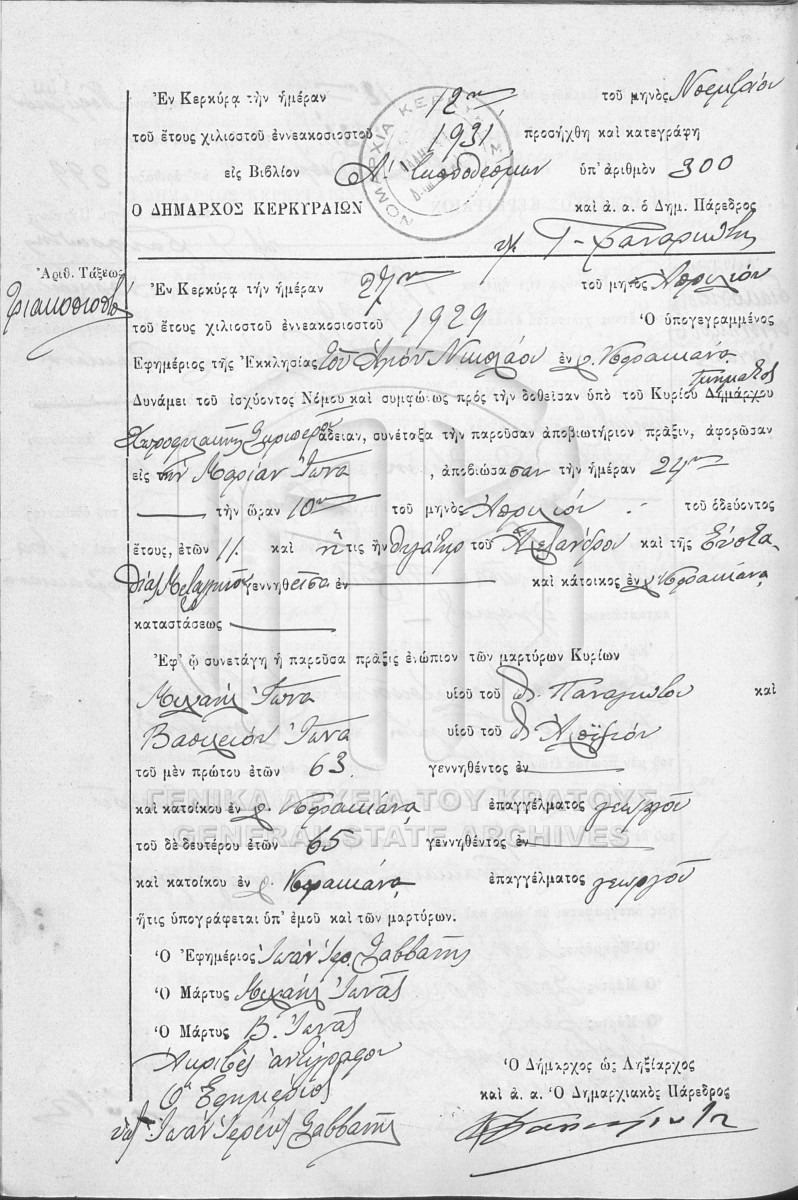 Ἐν Κερκύρᾳ τὴν ἡμέραν 12ην τοῦ μηνὸς Νοεμβρίου
τοῦ ἔτους χιλιοστοῦ ἐννεακοσιοστοῦ 1931 προσήχθη καὶ κατεγράφη
εἰς Βιβλίον ὑπ' ἀριθμὸν 300
Ο ΔΗΜΑΡΧΟΣ ΚΕΡΚΥΡΑΙΩΝ καὶ ἀ. ἀ. ὁ Δημ. Πάρεδρος
ΝΟΜΑΡΧΙΑ ΚΕΡΚΥΡΑΣ
Ἀριθ. Τάξεως
Ἐν Κερκύρᾳ τήν ἡμέραν 27ην τοῦ μηνὸς Ἀπριλίου
τοῦ ἔτους χιλιοστοῦ ἐννεακοσιοστοῦ 1929 Ὁ ὑπογεγραμμένος
Ἐφημέριος τῆς Ἐκκλησίας τοῦ Ἁγίου Νικολάου ἐν χ.
τμήματος
Δυνάμει τοῦ ἰσχύοντος Νόμου καὶ συμφώνως πρός τὴν δοθεῖσαν ὑπὸ τοῦ Κυρίου Δημάρχου
ἄδειαν, συνέταξα τὴν παροῦσαν ἀποβιωτήριον πρᾶξιν, ἀφορῶσαν
εἰς τὴν Μαρίαν Ἰωνᾶ, ἀποβιώσασαν τὴν ἡμέραν 24ην
τὴν ὥραν 10ην τοῦ μηνὸς Ἀπριλίου τοῦ ὁδεύοντος
ἔτους, ἐτῶν 11 καὶ ἥτις ἦν θυγάτηρ τοῦ Ἀλεξάνδρου καὶ τῆς Εὐστα-
θίας γεννηθεῖσα ἐν καὶ κάτοικος ἐν χ.
καταστάσεως
Ἐφ' ᾧ συνετάγη ἡ παροῦσα πρᾶξις ἐνώπιον τῶν μαρτύρων Κυρίων
Μιχαὴλ Ἰωνᾶ υἱοῦ τοῦ Παναγιώτου καὶ
Βασιλείου Ἰωνᾶ υἱοῦ τοῦ
τοῦ μὲν πρώτου ἐτῶν 63 γεννηθέντος ἐν
καὶ κατοίκου ἐν χ. ἐπαγγέλματος γεωργοῦ
ΓΕΝΙΚΑ ΑΡΧΕΙΑ ΤΟΥ ΚΡΑΤΟΥΣ
GENERAL STATE ARCHIVES
τοῦ δὲ δευτέρου ἐτῶν 65 γεννηθέντος ἐν
καὶ κατοίκου ἐν χ. ἐπαγγέλματος γεωργοῦ
ἥτις ὑπογράφεται ὑπ' ἐμοῦ καὶ τῶν μαρτύρων.
Ὁ Ἐφημέριος Ἰωάν Ἱερ. Σαββανῆς
Ὁ Μάρτυς Μιχαὴλ Ἰωνᾶς
Ὁ Μάρτυς Β. Ἰωνᾶς
Ἀκριβὲς ἀντίγραφον
Ὁ Ἐφημέριος
Ἰωάν Ἱερεὺς Σαββανῆς
Ὁ Δήμαρχος ὡς Ληξίαρχος
καὶ ἀ. ἀ. Ὁ Δημαρχιακὸς Πάρεδρος